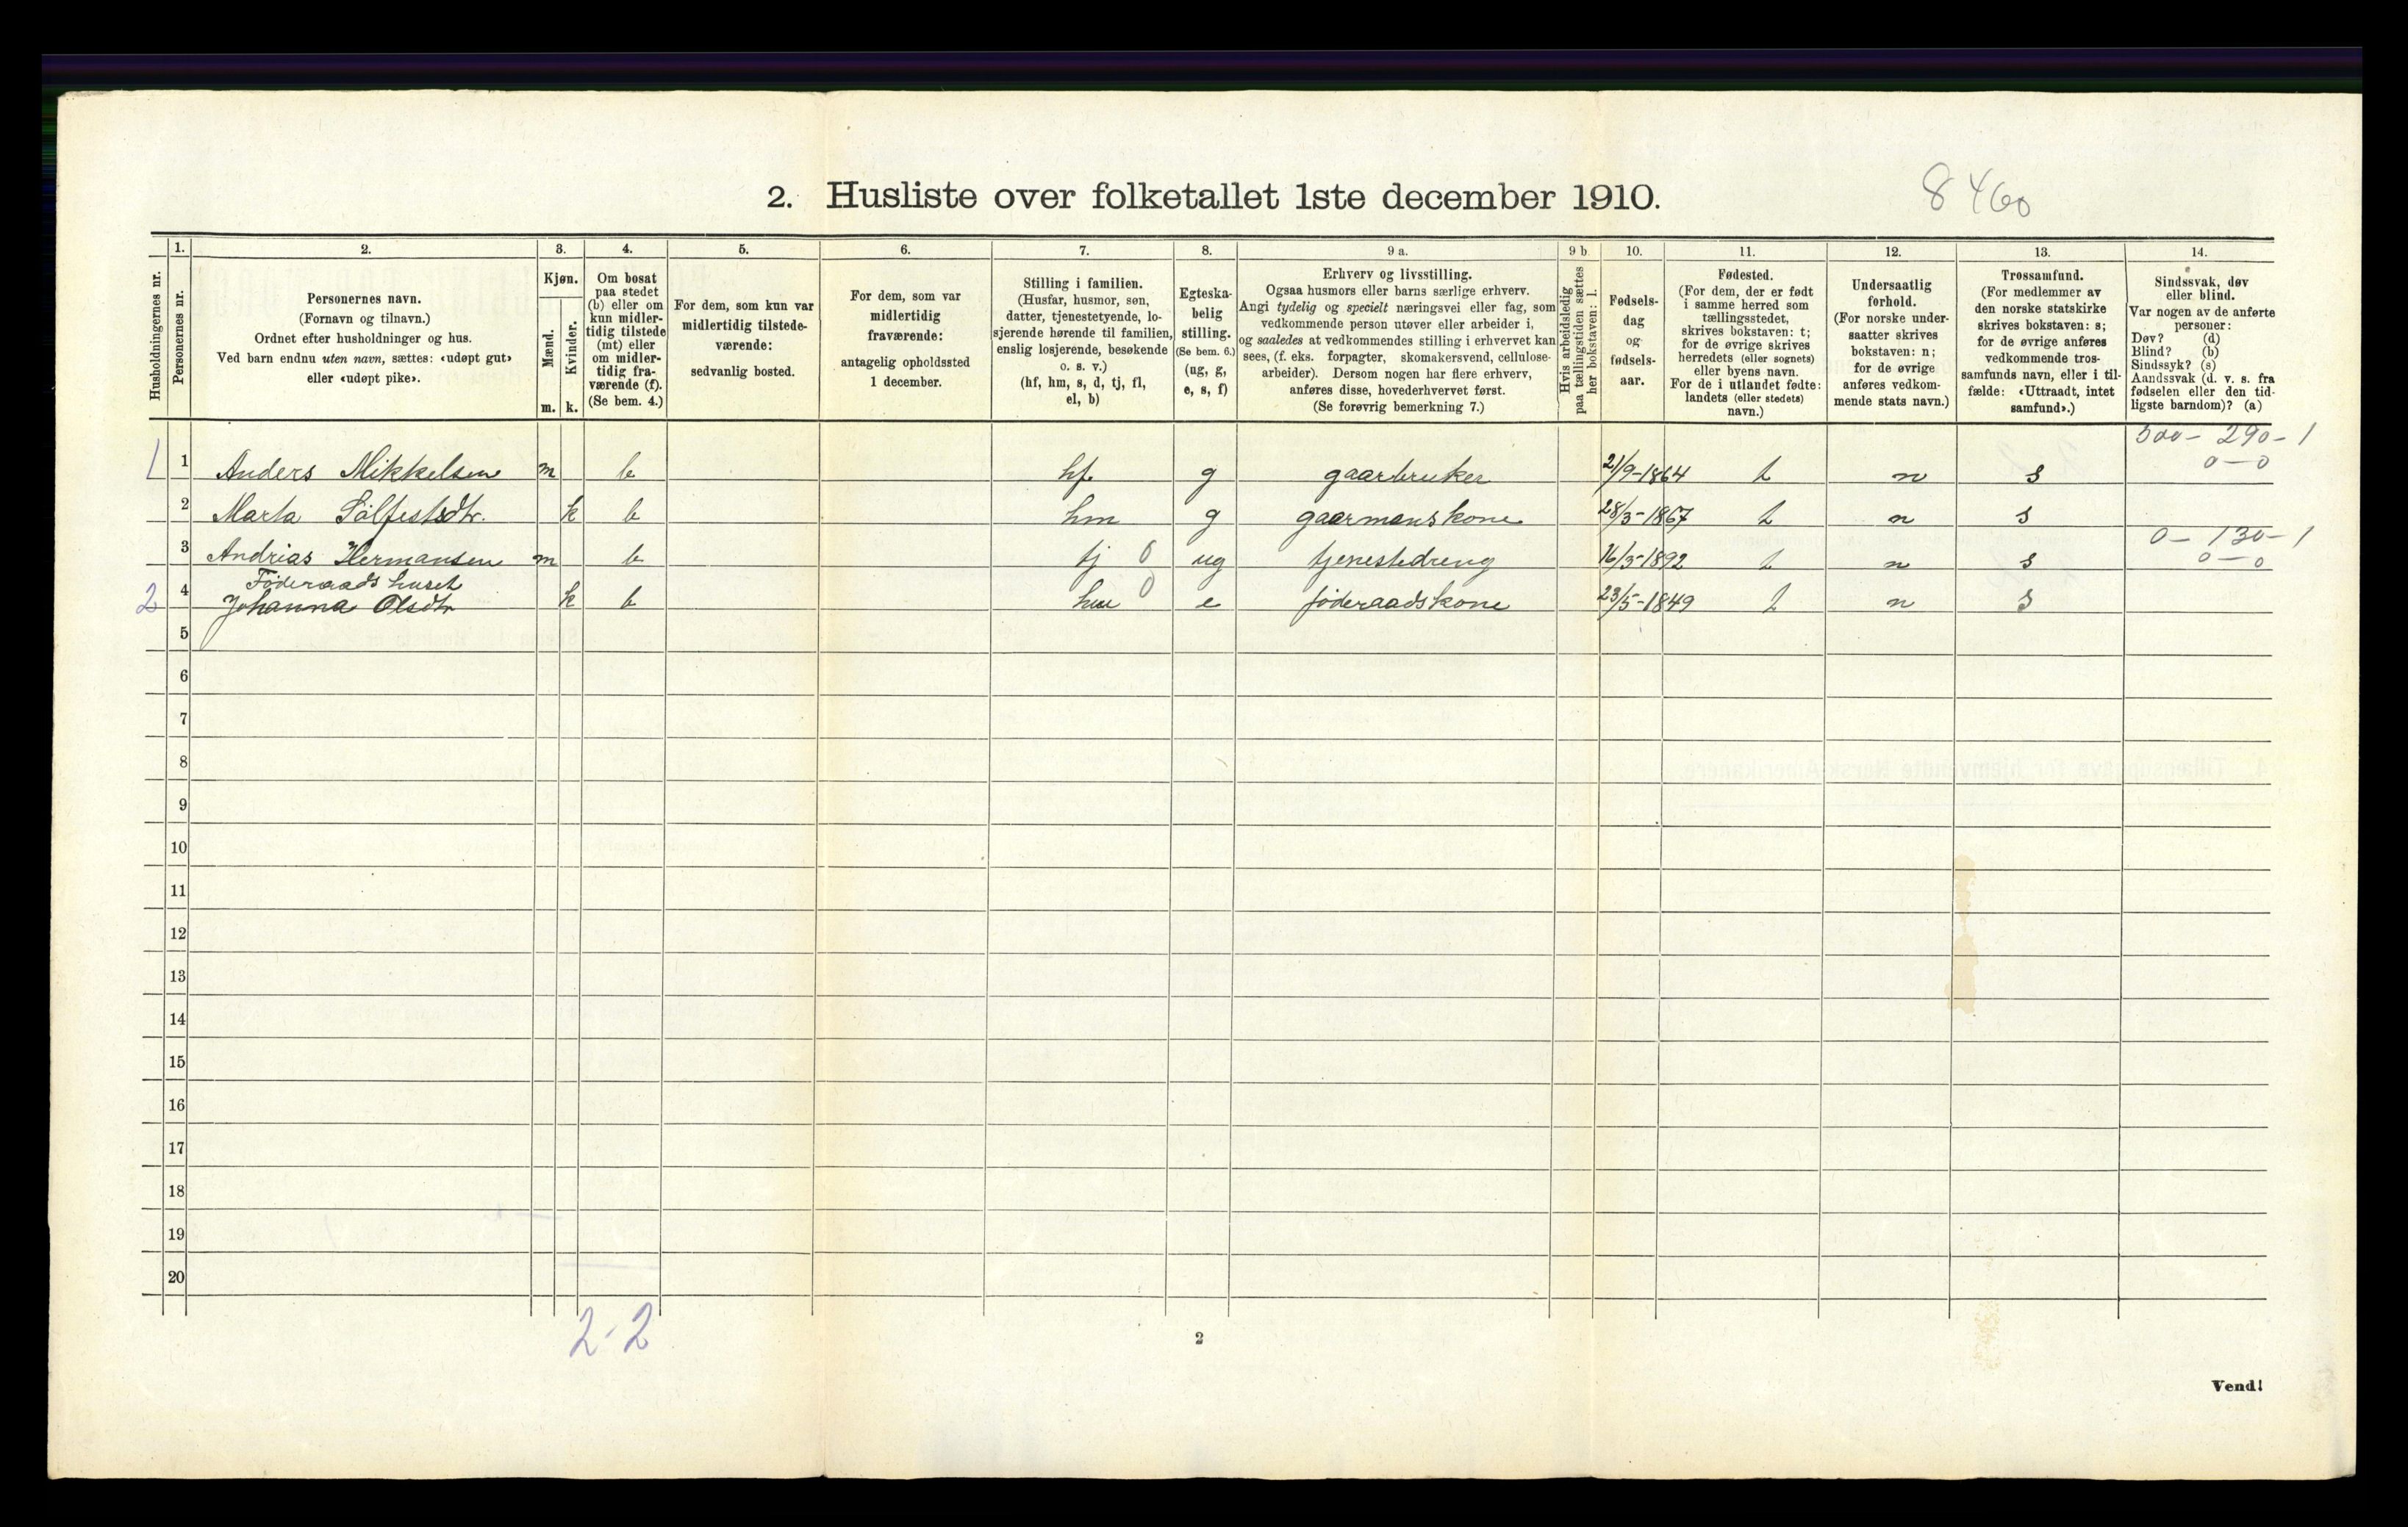 2. Husliste over folketallet 1ste december 1910.
8460
Husholdningernes nr.
1.
Personernes nr.
2.
Personernes navn.
(Fornavn og tilnavn.)
Ordnet efter husholdninger og hus.
Ved barn endnu uten navn, sættes: «udøpt gut»
eller «udøpt pike».
3.
Kjøn.
Mænd.
Kvinder.
m. k.
4.
Om bosat
paa stedet
(b) eller om
kun midler-
tidig tilstede
(mt) eller
om midler-
tidig fra-
værende (f).
(Se bem. 4.)
5.
For dem, som kun var
midlertidig tilstede-
værende:
sedvanlig bosted.
6.
For dem, som var
midlertidig
fraværende:
antagelig opholdssted
1 december.
7.
Stilling i familien.
(Husfar, husmor, søn,
datter, tjenestetyende, lo-
sjerende hørende til familien,
enslig losjerende, besøkende
o. s. v.)
(hf, hm, s, d, tj, fl,
el, b)
8.
Egteska-
belig
stilling.
(Se bem. 6.)
(ug, g,
e, s, f)
9 a.
Erhverv og livsstilling.
Ogsaa husmors eller barns særlige erhverv.
Angi tydelig og specielt næringsvei eller fag, som
vedkommende person utøver eller arbeider i,
og saaledes at vedkommendes stilling i erhvervet kan
sees, (f. eks. forpagter, skomakersvend, cellulose-
arbeider). Dersom nogen har flere erhverv,
anføres disse, hovederhvervet først.
(Se forøvrig bemerkning 7.)
9 b.
Hvis arbeidsledig
paa tællingstiden sættes
her bokstaven: l.
10.
Fødsels-
dag
og
fødsels-
aar.
11.
Fødested.
(For dem, der er født
i samme herred som
tællingsstedet,
skrives bokstaven: t;
for de øvrige skrives
herredets (eller sognets)
eller byens navn.
For de i utlandet fødte:
landets (eller stedets)
navn.)
12.
Undersaatlig
forhold.
(For norske under-
saatter skrives
bokstaven: n;
for de øvrige
anføres vedkom-
mende stats navn.)
13.
Trossamfund.
(For medlemmer av
den norske statskirke
skrives bokstaven: s;
for de øvrige anføres
vedkommende tros-
samfunds navn, eller i til-
fælde: «Uttraadt, intet
samfund».)
14.
Sindssvak, døv
eller blind.
Var nogen av de anførte
personer:
Døv? (d)
Blind? (b)
Sindssyk? (s)
Aandssvak (d. v. s. fra
fødselen eller den tid-
ligste barndom)? (a)
500- 290- 1
0-0
1 1 Anders Mikkelsen m b hf. g gaarbruker 21/9-1864 t n s
2 Marta Sølfestsdtr. k b hm g gaarmanskone 28/3-1867 t n s
0- 130- 1
0-0
3 Andrias Hermansen m b tj 0 ug tjenestedreng 16/3-1892 t n s
Føderaadshuset
2 4 Johanna Olsdtr k b hm 0 e føderaadskone 23/5-1849 t n s
5
6
7
8
9
10
11
12
13
14
15
16
17
18
19
20
2-2
2
Vend!